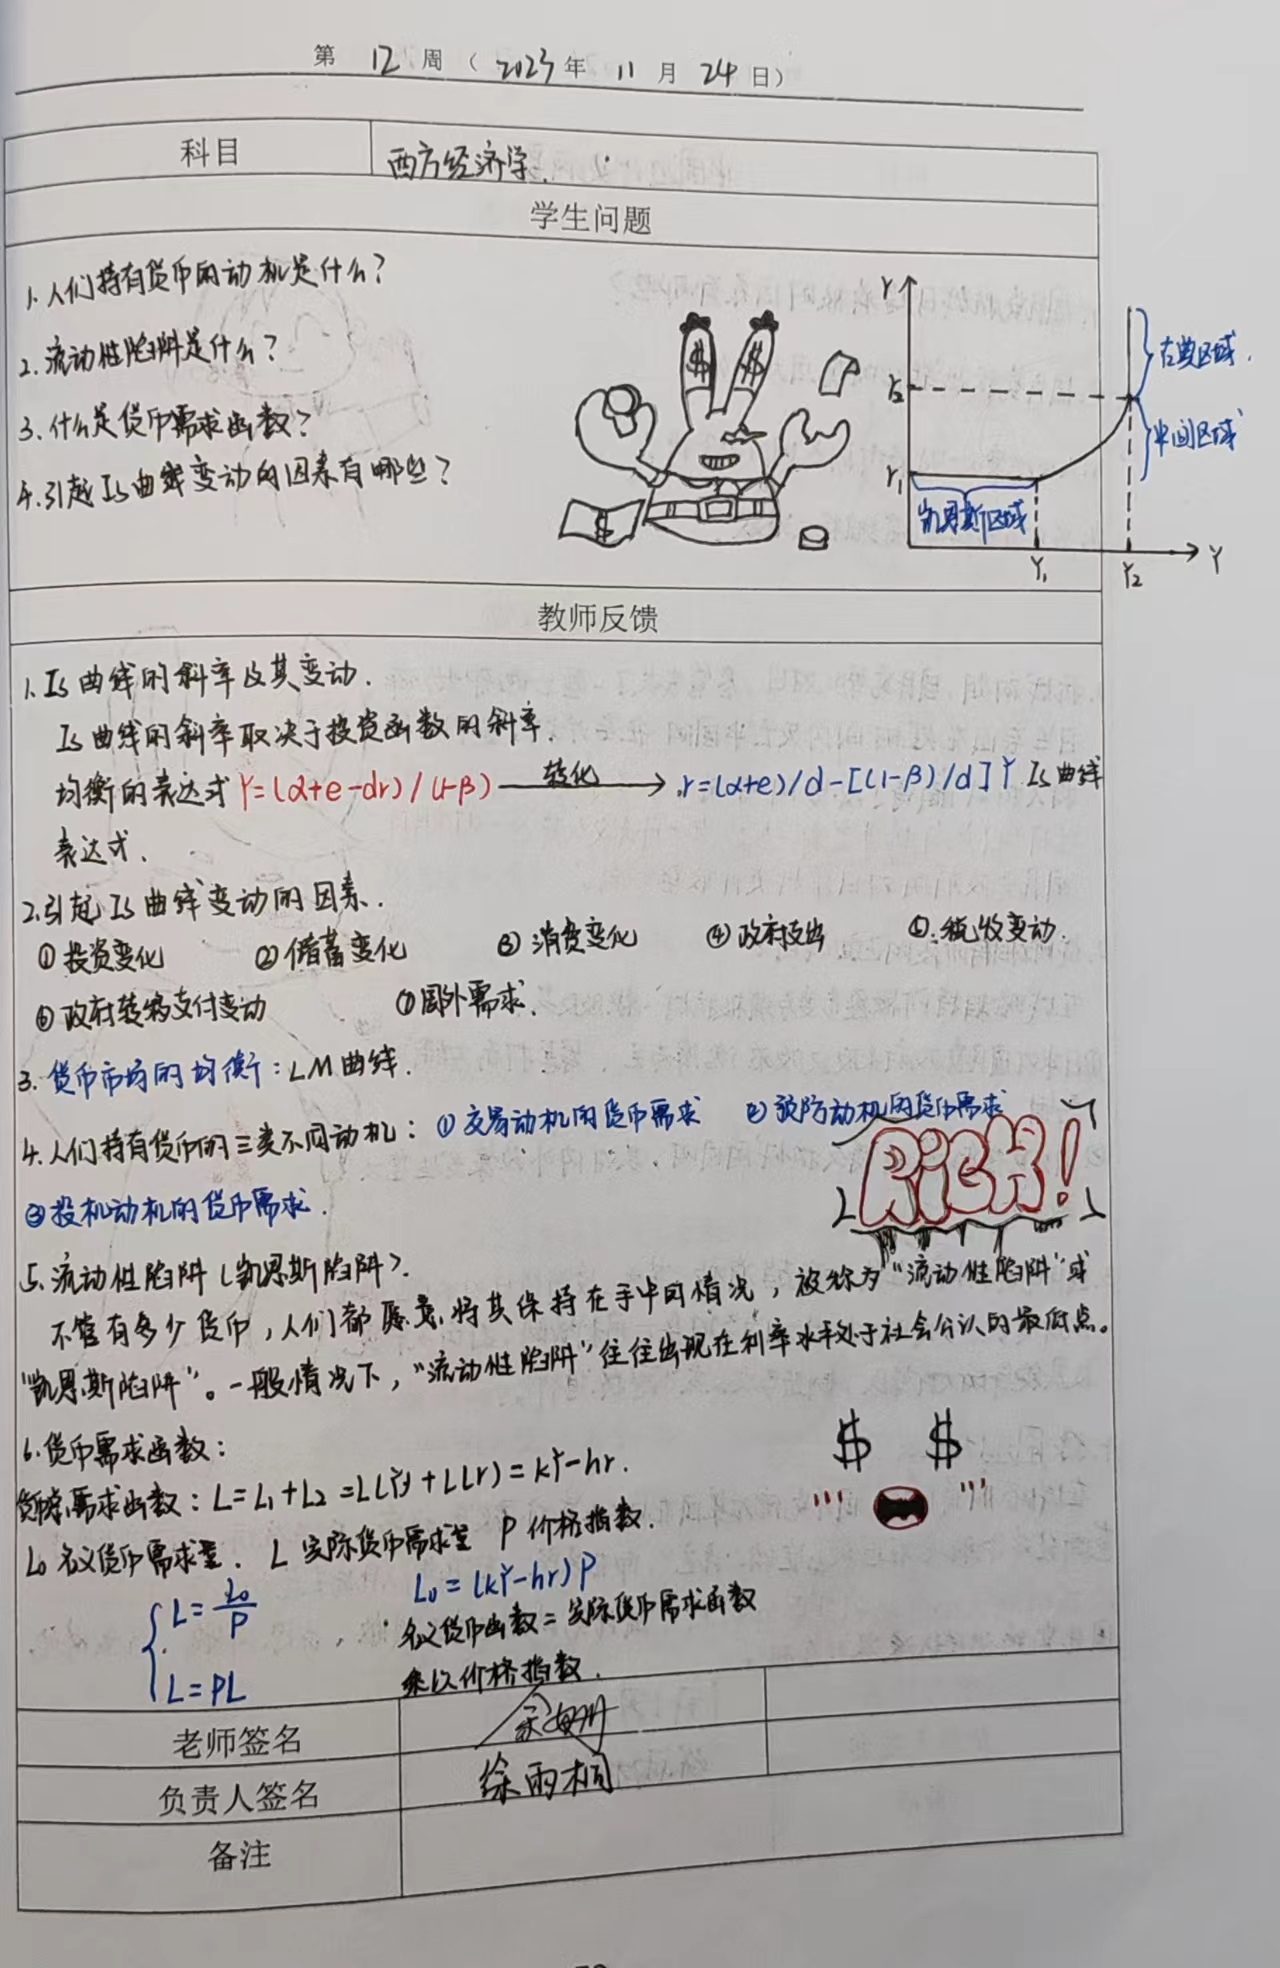 第 12 周 ( 2023 年 11 月 24 日)
科目 西方经济学.
学生问题
1. 人们持有货币的动机是什么?
2. 流动性陷阱是什么?
3. 什么是货币需求函数?
4. 引起Is曲线变动的因素有哪些?
$ $
$
r
r2
r1
古典区域.
中间区域
凯恩斯区域
Y1 Y2 Y
教师反馈
1. Is曲线的斜率及其变动.
Is曲线的斜率取决于投资函数的斜率.
均衡的表达式 Y=(α+e-dr)/(1-β) 转化 r=(α+e)/d-[(1-β)/d]Y Is曲线
表达式.
2. 引起Is曲线变动的因素.
①投资变化 ②储蓄变化 ③消费变化 ④政府支出 ⑤.税收变动.
⑥政府转移支付变动 ⑦国外需求.
3. 货币市场的均衡: LM曲线.
4. 人们持有货币的三类不同动机: ①交易动机的货币需求 ②预防动机的货币需求
③投机动机的货币需求.
RiCH!
5. 流动性陷阱(凯恩斯陷阱).
不管有多少货币,人们都愿意将其保持在手中的情况,被称为"流动性陷阱"或
"凯恩斯陷阱"。一般情况下,"流动性陷阱"往往出现在利率水平处于社会公认的最低点。
$ $
6. 货币需求函数:
需求函数: L=L1+L2=L(Y)+L(r)=kY-hr.
L0 名义货币需求量. L 实际货币需求量 P 价格指数.
L=L0/P
L=PL
L0=(kY-hr)P
名义货币函数=实际货币需求函数
乘以价格指数.
老师签名
负责人签名 徐雨桐
备注